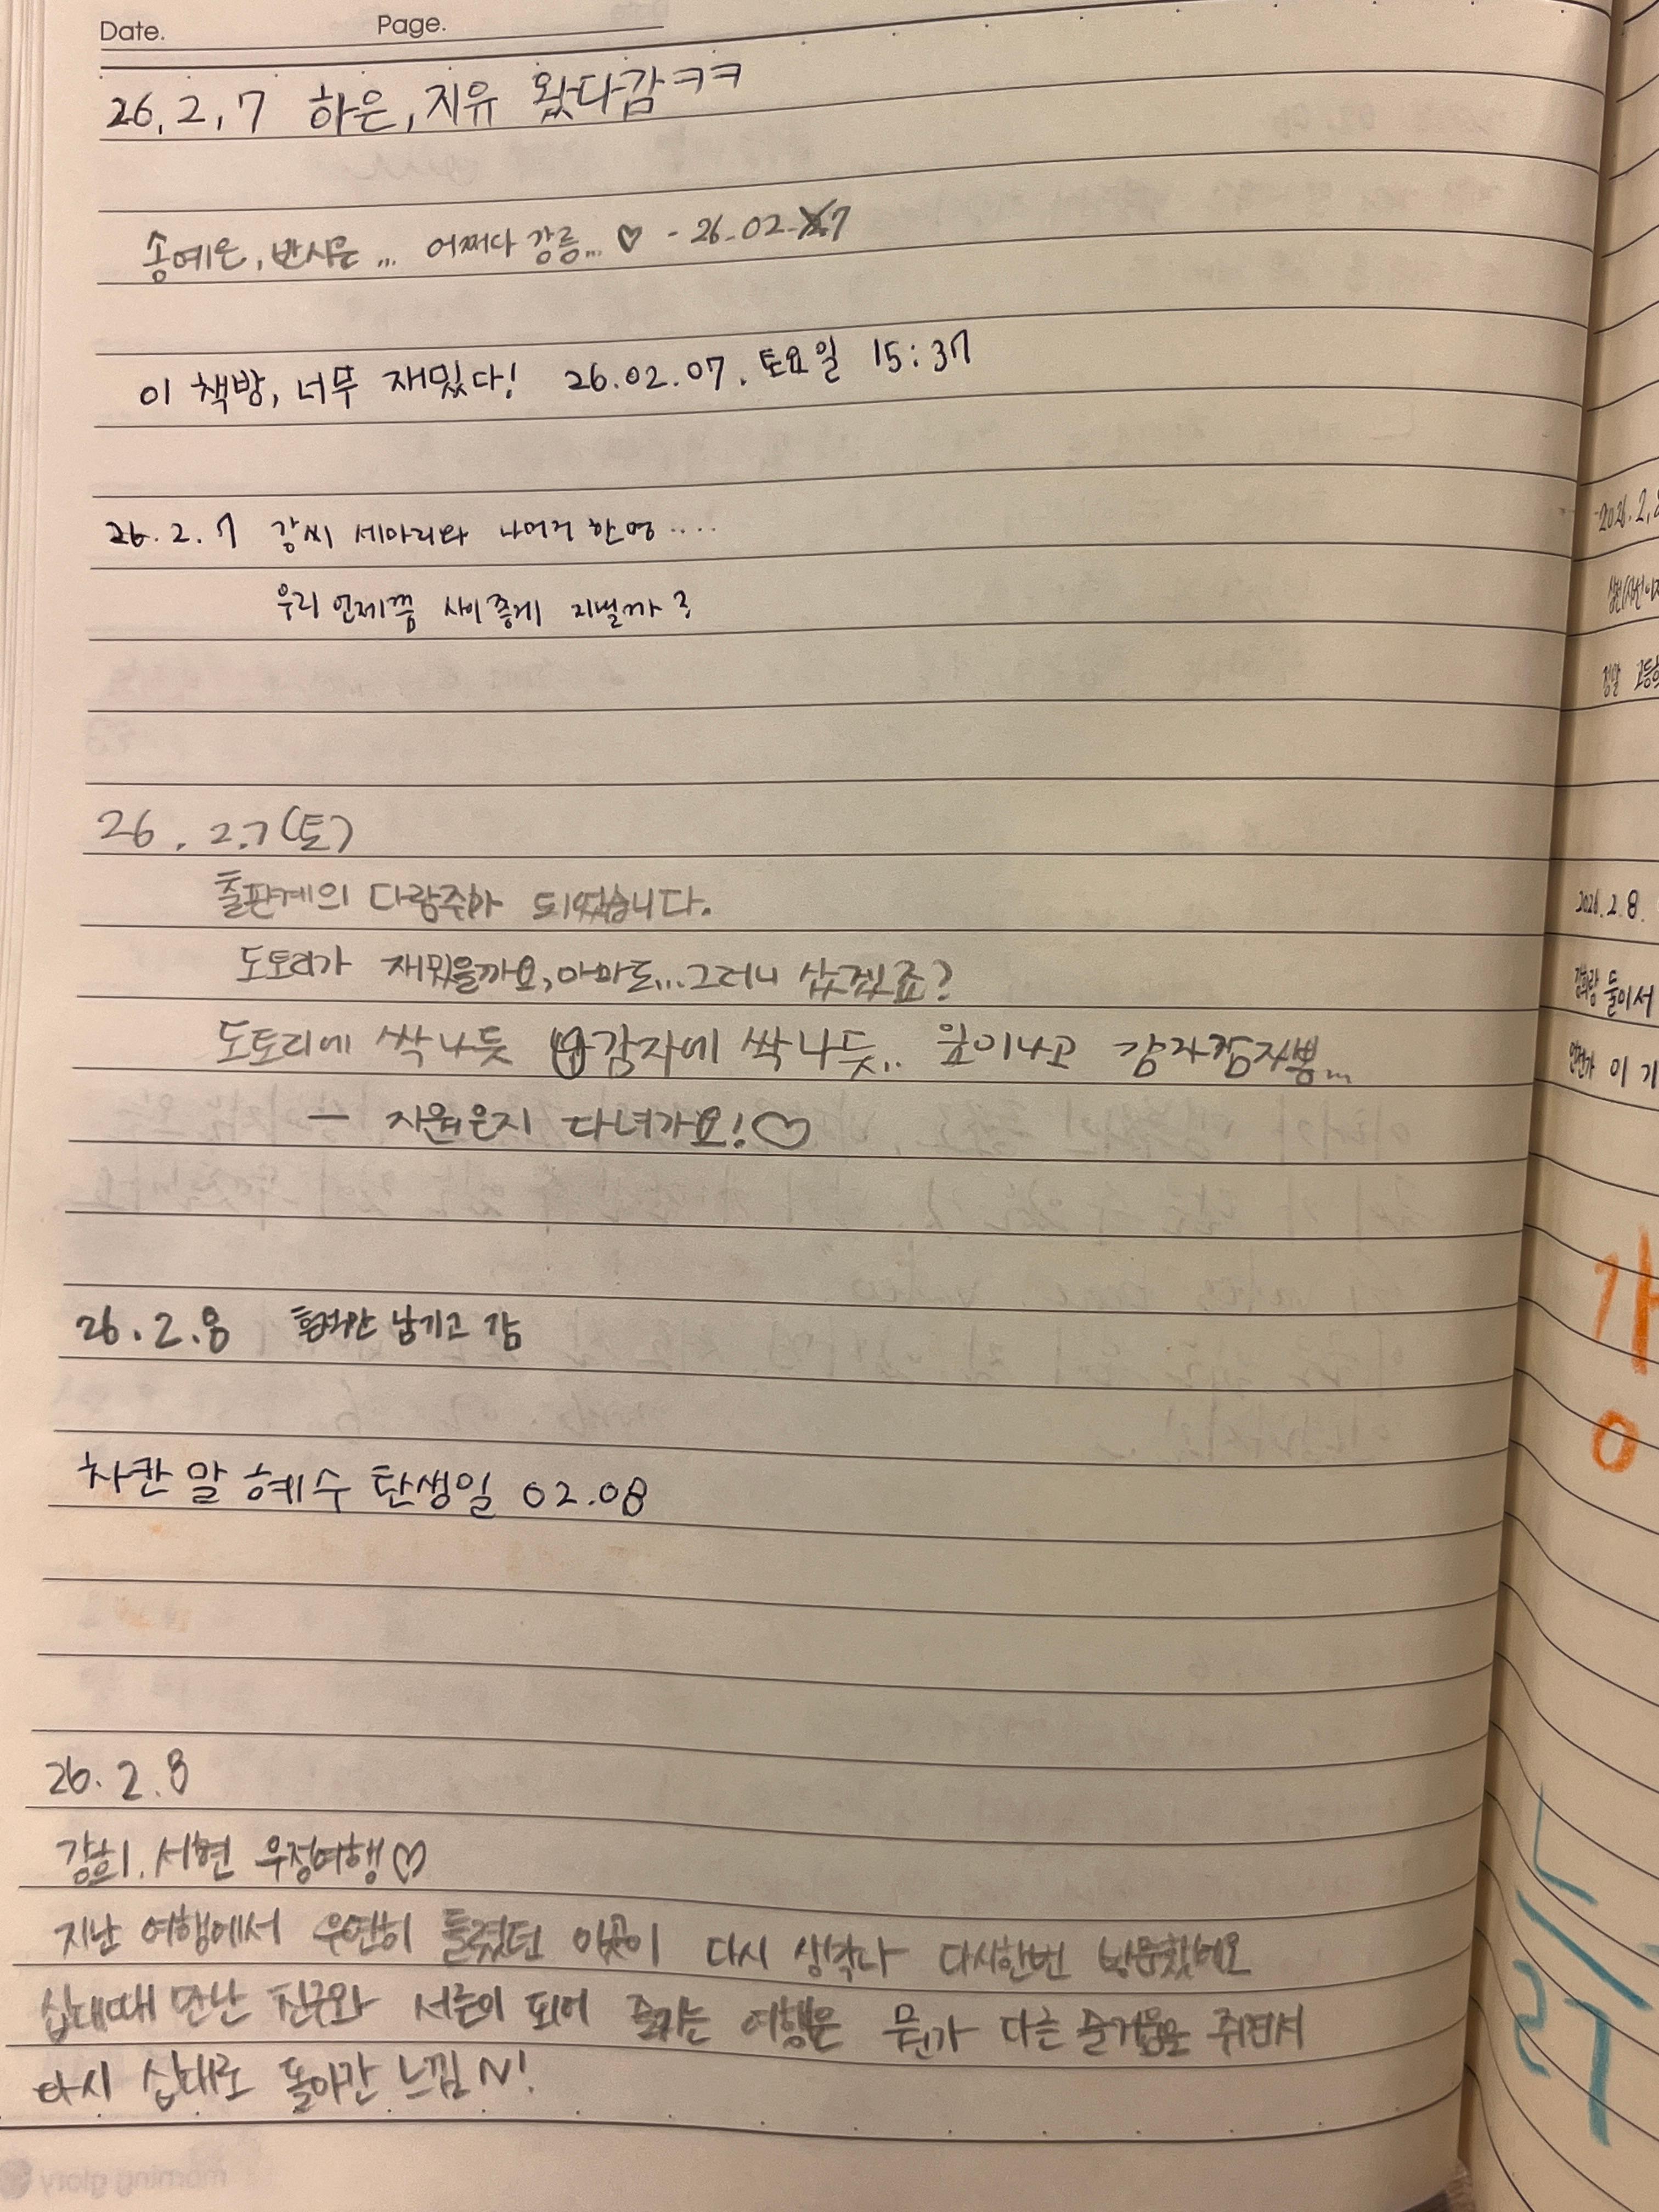 Date. Page.
26, 2, 7 하은, 지유 왔다감ㅋㅋ
송예은, 반시은 ... 어쩌다 강릉... ♡ - 26-02-7
이 책방, 너무 재밌다! 26.02.07. 토요일 15:37
26. 2. 7 강씨 세마리와 나머지 한명 ....
우리 언제쯤 사이좋게 지낼까?
26. 2.7(토)
출판계의 다람쥐가 되었습니다.
도토리가 재밌을까요, 아마도...그러니 샀겠죠?
도토리에 싹나듯 감자에 싹나듯.. 잎이나고 감자
— 지원은지 다녀가요!♡
26. 2. 8 흔적만 남기고 감
차칸 말 혜수 탄생일 02.08
26. 2. 8
강희. 서현 우정여행♡
지난 여행에서 우연히 들렸던 이곳이 다시 생각나 다시한번 방문했네요
십대때 만난 친구와 서른이 되어 즐기는 여행은 뭔가 다른 즐거움을 주면서
다시 십대로 돌아간 느낌 N!
2026. 2. 8
2026. 2. 8.
둘이서
이
morning glory